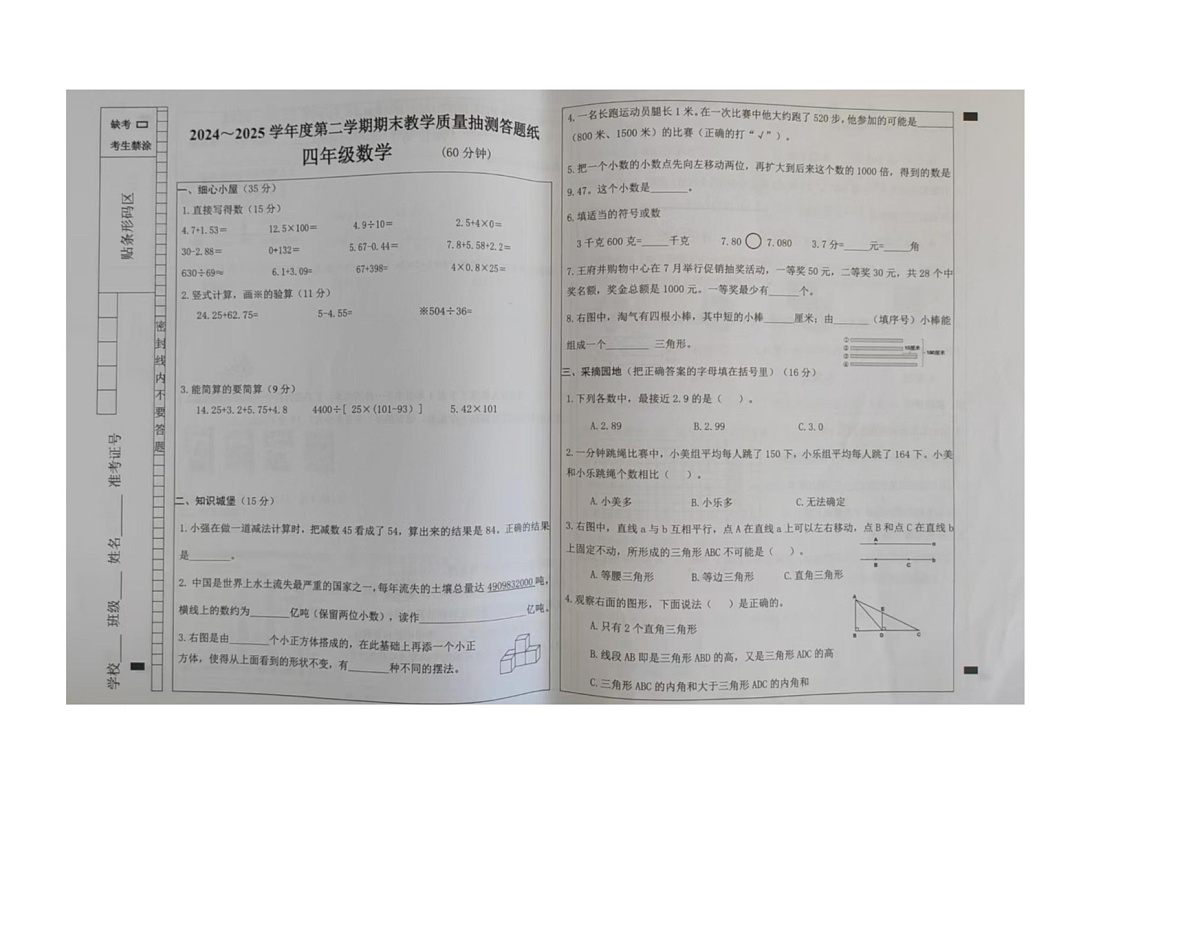 缺考
考生禁涂
贴条形码区
密封线内不要答题
学校____ 班级____ 姓名____ 准考证号
2024～2025 学年度第二学期期末教学质量抽测答题纸
四年级数学 (60 分钟)
一、细心小屋(35 分)
1.直接写得数(15 分)
4.7+1.53= 12.5×100= 4.9÷10= 2.5+4×0=
30-2.88= 0+132= 5.67-0.44= 7.8+5.58+2.2=
630÷69≈ 6.1+3.09= 67+398= 4×0.8×25=
2.竖式计算，画※的验算(11 分)
24.25+62.75= 5-4.55= ※504÷36=
3.能简算的要简算(9 分)
14.25+3.2+5.75+4.8 4400÷[ 25×(101-93) ] 5.42×101
二、知识城堡(15 分)
1.小强在做一道减法计算时，把减数 45 看成了 54，算出来的结果是 84，正确的结果
是______。
2. 中国是世界上水土流失最严重的国家之一，每年流失的土壤总量达 4909832000 吨，
横线上的数约为______亿吨(保留两位小数)，读作______________亿吨。
3.右图是由______个小正方体搭成的，在此基础上再添一个小正
方体，使得从上面看到的形状不变，有______种不同的摆法。
4.一名长跑运动员腿长 1 米。在一次比赛中他大约跑了 520 步，他参加的可能是______
(800 米、1500 米) 的比赛 (正确的打“√”)。
5.把一个小数的小数点先向左移动两位，再扩大到后来这个数的 1000 倍，得到的数是
9.47。这个小数是______。
6.填适当的符号或数
3 千克 600 克=____千克 7.80 ○ 7.080 3.7 分=____元=____角
7.王府井购物中心在 7 月举行促销抽奖活动，一等奖 50 元，二等奖 30 元，共 28 个中
奖名额，奖金总额是 1000 元。一等奖最少有_____个。
8.右图中，淘气有四根小棒，其中短的小棒_____厘米；由_____（填序号）小棒能
组成一个______ 三角形。
①
②
③
④
10厘米
180厘米
三、采摘园地 (把正确答案的字母填在括号里)(16 分)
1.下列各数中，最接近 2.9 的是（ ）。
A.2.89 B.2.99 C.3.0
2.一分钟跳绳比赛中，小美组平均每人跳了 150 下，小乐组平均每人跳了 164 下。小美
和小乐跳绳个数相比（ ）。
A.小美多 B.小乐多 C.无法确定
3.右图中，直线 a 与 b 互相平行，点 A 在直线 a 上可以左右移动，点 B 和点 C 在直线 b
上固定不动，所形成的三角形 ABC 不可能是（ ）。
A a
B C b
A.等腰三角形 B.等边三角形 C.直角三角形
4.观察右面的图形，下面说法（ ）是正确的。
A E
B D C
A.只有 2 个直角三角形
B.线段 AB 即是三角形 ABD 的高，又是三角形 ADC 的高
C.三角形 ABC 的内角和大于三角形 ADC 的内角和